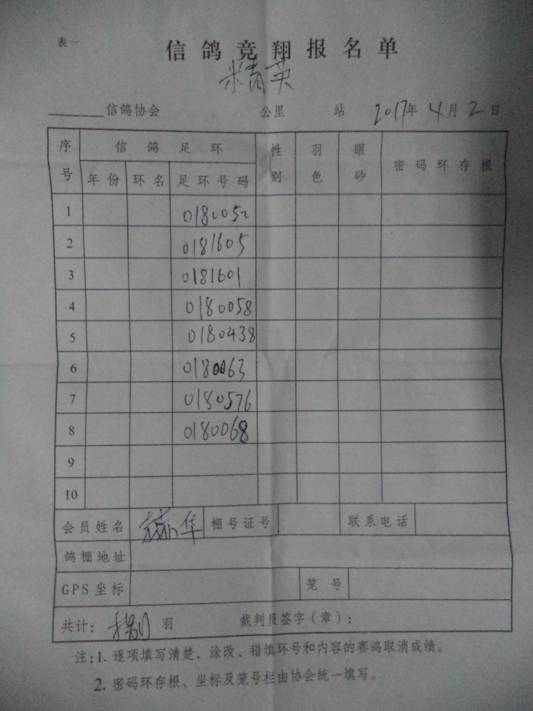 表一
信鸽竞翔报名单
精英
信鸽协会 公里 站 2017年4月2日
序号 信鸽足环 性别 羽色 眼砂 密码环存根
年份 环名 足环号码
1 0180052
2 0181605
3 0181601
4 0180058
5 0180438
6 0180063
7 0180576
8 0180068
9
10
会员姓名 棚号证号 联系电话
鸽棚地址
GPS坐标 笼号
共计: 羽 裁判员签字(章):
注:1. 逐项填写清楚、涂改、错填环号和内容的赛鸿取消成绩。
2. 密码环存根、坐标及笼号栏由协会统一填写。